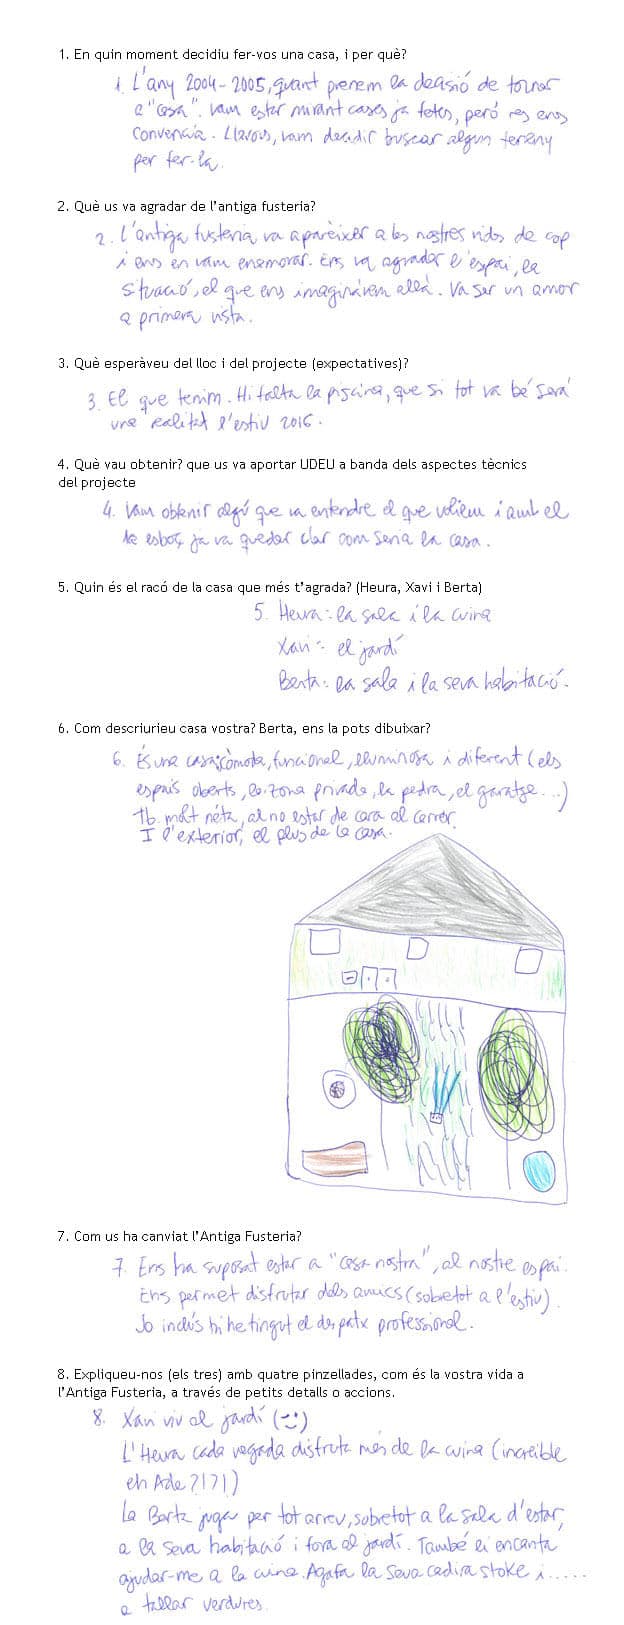 1. En quin moment decidiu fer-vos una casa, i per què?
1. L'any 2004-2005, quant prenem la decisió de tornar
a "casa". Vam estar mirant cases ja fetes, però res ens
convencia. Llavors, vam decidir buscar algun terreny
per fer-la.
2. Què us va agradar de l'antiga fusteria?
2. L'antiga fusteria va aparèixer a les nostres vides de cop
i ens en vam enamorar. Ens va agradar l'espai, la
situació, el que ens imaginàvem allà. Va ser un amor
a primera vista.
3. Què esperàveu del lloc i del projecte (expectatives)?
3. El que tenim. Hi falta la piscina, que si tot va bé serà
una realitat l'estiu 2016.
4. Què vau obtenir? que us va aportar UDEU a banda dels aspectes tècnics
del projecte
4. Vam obtenir algú que va entendre el que volíem i amb el
1er esboç ja va quedar clar com seria la casa.
5. Quin és el racó de la casa que més t'agrada? (Heura, Xavi i Berta)
5. Heura: la sala i la cuina
Xavi: el jardí
Berta: la sala i la seva habitació.
6. Com descriuríeu casa vostra? Berta, ens la pots dibuixar?
6. És una casa còmoda, funcional, lluminosa i diferent (els
espais oberts, la zona privada, la pedra, el garatge...)
Tb. molt neta, al no estar de cara al carrer.
I l'exterior, el plus de la casa.
7. Com us ha canviat l'Antiga Fusteria?
7. Ens ha suposat estar a "casa nostra", al nostre espai.
Ens permet disfrutar dels amics (sobretot a l'estiu).
Jo inclús hi he tingut el despatx professional.
8. Expliqueu-nos (els tres) amb quatre pinzellades, com és la vostra vida a
l'Antiga Fusteria, a través de petits detalls o accions.
8. Xavi viu al jardí (:-))
L'Heura cada vegada disfruta més de la cuina (increïble
eh Ade?!?!)
La Berta juga per tot arreu, sobretot a la sala d'estar,
a la seva habitació i fora al jardí. També li encanta
ajudar-me a la cuina. Agafa la seva cadira stoke i.....
a tallar verdures.